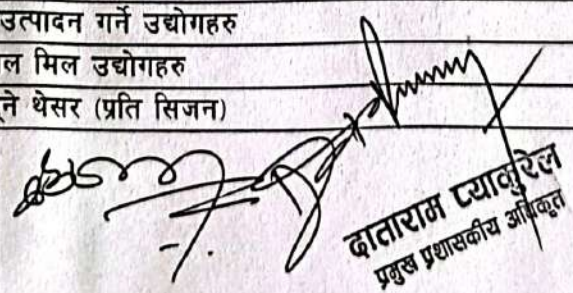 उत्पादन गर्ने उद्योगहरु
ल मिल उद्योगहरु
ने थेसर (प्रति सिजन)
दाताराम प्याकुरेल
प्रमुख प्रशासकीय अधिकृत